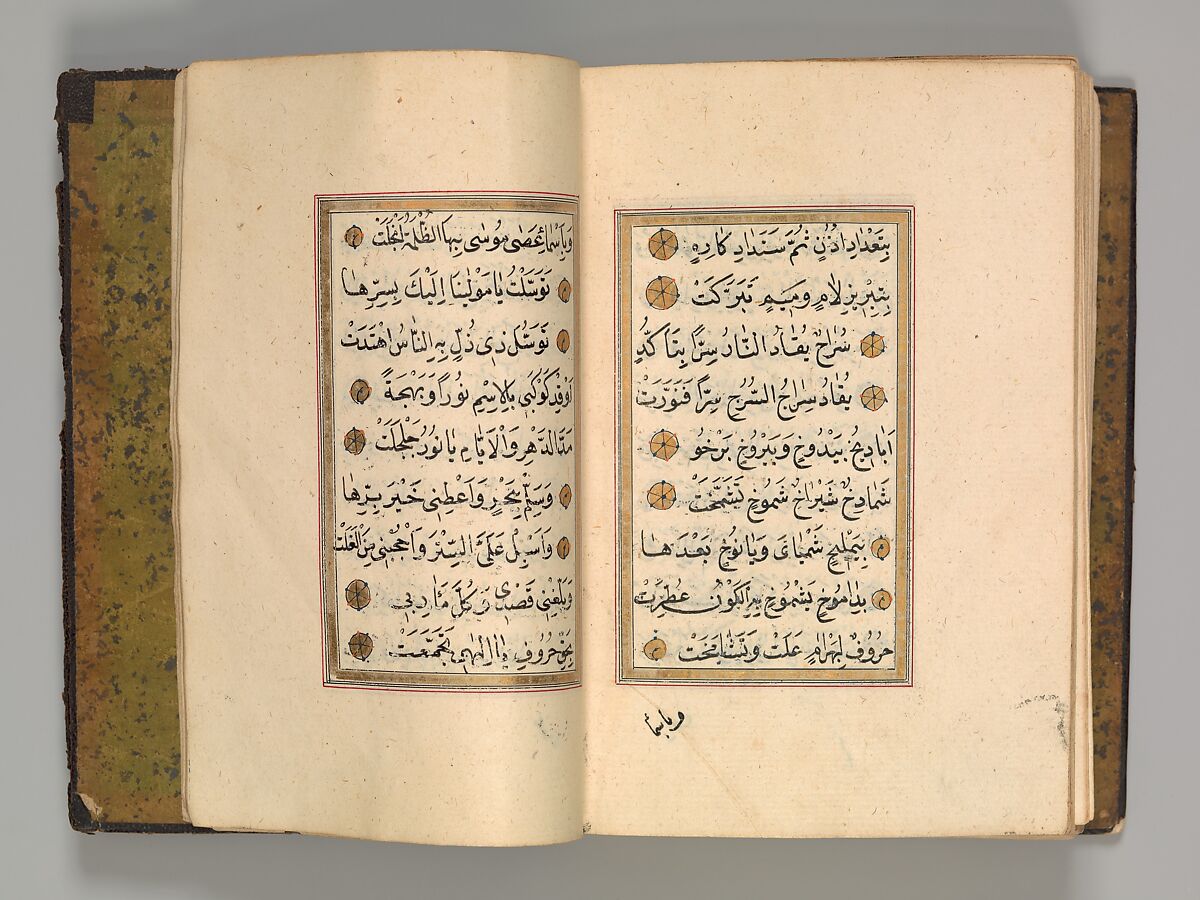 بِتَعْدَادِ اَذُنٍ ثُمَّ سَنَدَادِ كَارِهٍ
بِتِبْرِيزِ لَامٍ وَمِيمٍ تَبَرَّكَتْ
سُرَاجٌ يُقَادُ النَّارُ سِرًّا بِتَاكُدٍّ
يُقَادُ سِرَاجُ السُّرُجِ سِرًّا فَنَوَّرَتْ
اَبَادِيخٍ بَيْدُوخٍ وَبَيْرُوخٍ بَرْخُو
شَمَادِخٌ شَيْرَاخٌ شَمُوخٍ تَشَمَّخَتْ
بِيَمْلِيخٍ شَمْيَاىَ وَيَانُوخٍ بَعْدَهَا
بِدَامُوخٍ يَشْمُوخٍ بِهِ الْكَوْنُ عُطِّرَتْ
حُرُوفٌ لِبَهْرَامٍ عَلَتْ وَتَشَامَخَتْ
وباسماء
وَبِاَسْمَاءِ عَصَى مُوسَى بِهَا الظُّلْمَةُ انْجَلَتْ
تَوَسَّلْتُ يَا مَوْلَيْنَا اِلَيْكَ بِسِرِّهَا
تَوَسُّلَ ذِى ذُلٍّ بِهِ النَّاسُ اهْتَدَتْ
اَوْقِدْ كَوْكَبِى بِالْاِسْمِ نُورًا وَبَهْجَةً
مَدَّ الدَّهْرِ وَالْاَيَّامِ يَا نُورُ جَلْجَلَتْ
وَسَلِّمْ بِبَحْرٍ وَاَعْطِنِى خَيْرَ بِرِّهَا
وَاَسْبِلْ عَلَىَّ السِّتْرَ وَاحْجُبْنِى مِنَ الْغَلَتْ
وَبَلِّغْنِى قَصْدِى وَكُلَّ مَآرِبِى
بِحَقِّ حُرُوفٍ يَا اِلٰهِى تَجَمَّعَتْ